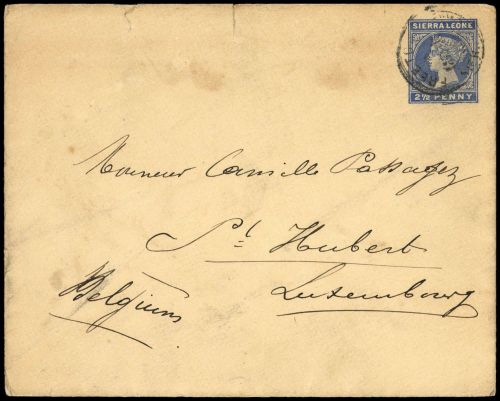 SIERRA LEONE
2½ PENNY
Monsieur Camille
St Hubert
Luxembourg
Belgium